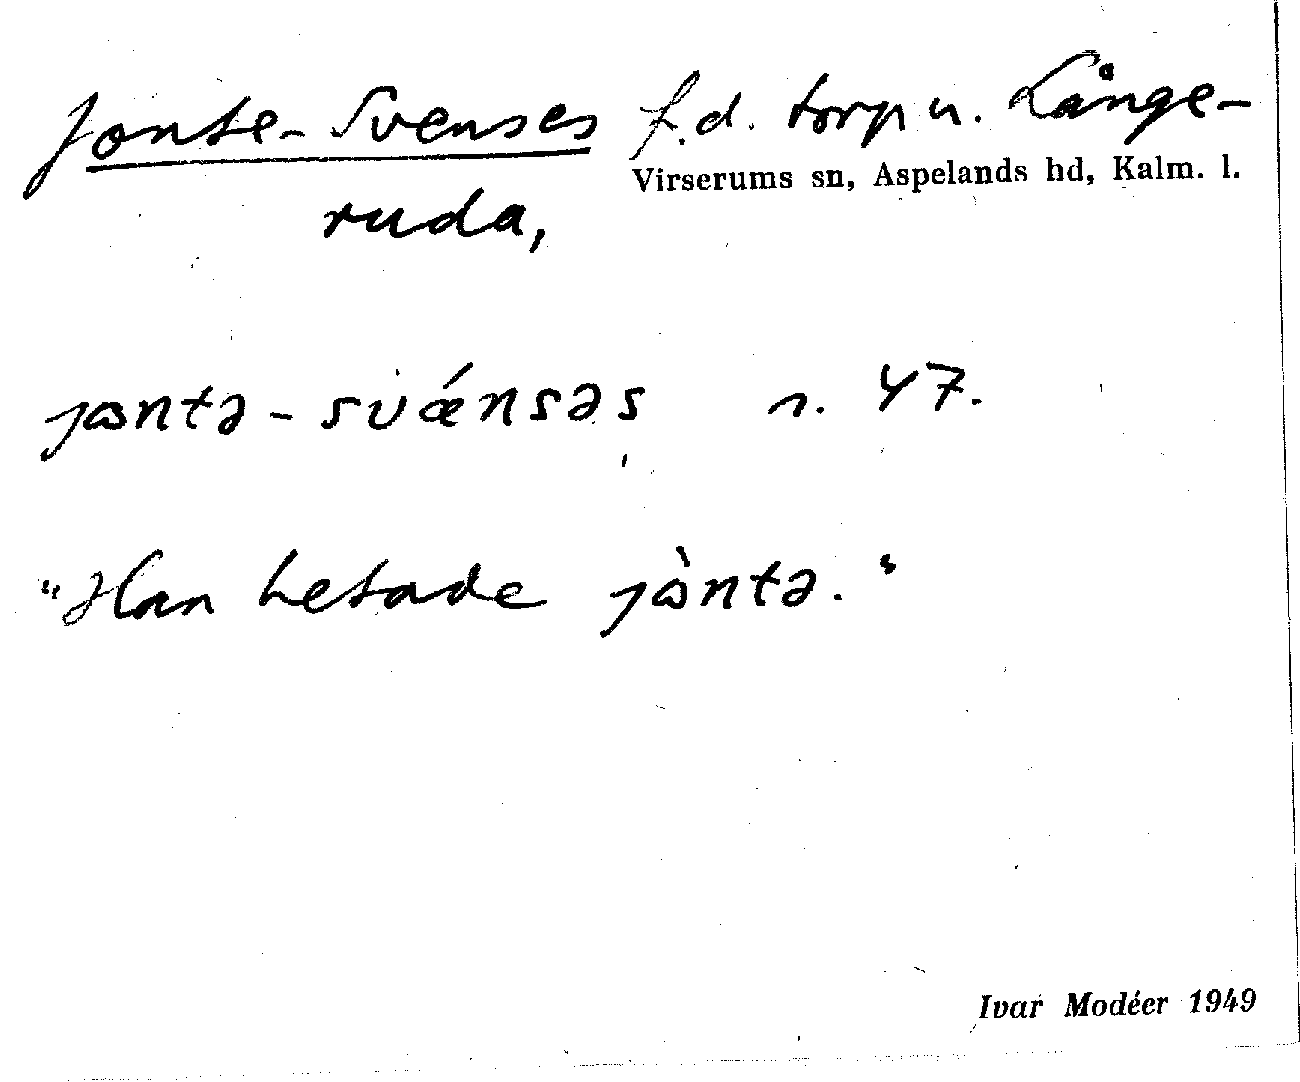 Jonte-Svenses f.d. torp u. Långe-
ruda,
Virserums sn, Aspelands hd, Kalm. l.
jɷntə-svǽnsəs n. 47.
"Han hetade jɷ̀ntə."
Ivar Modéer 1949